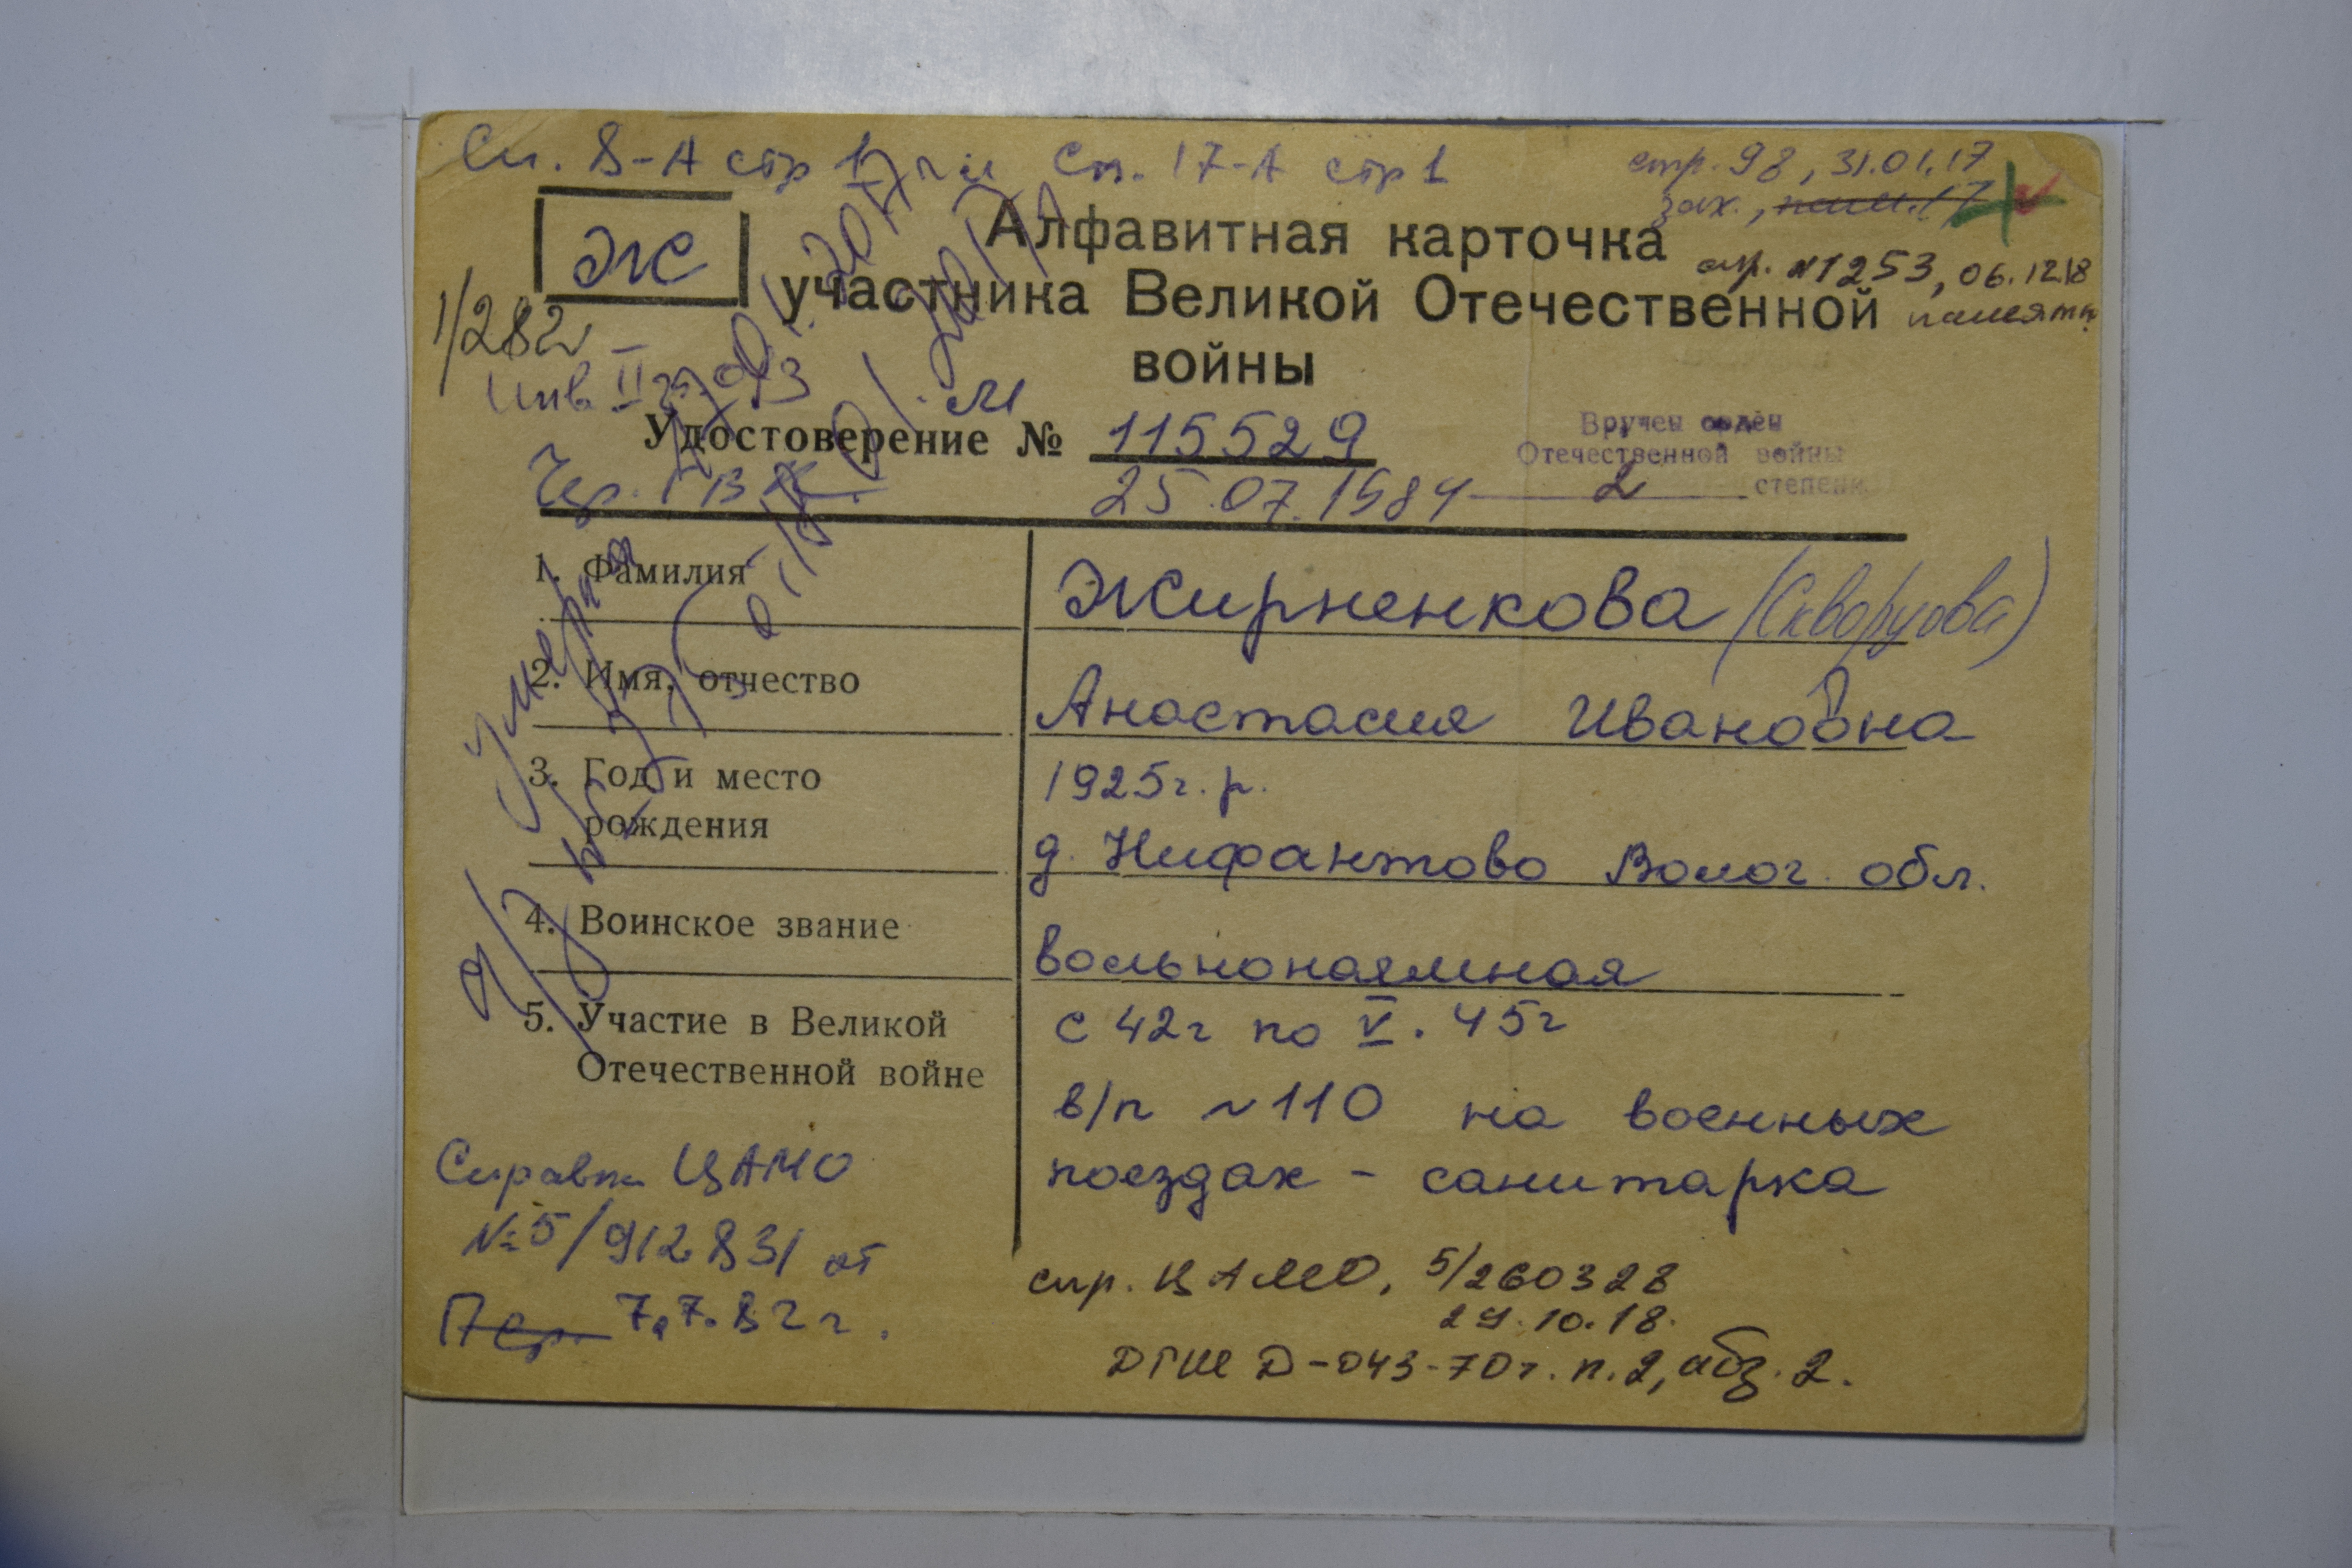 Сп. 8-А стр 1 Сп. 17-А стр 1
стр. 98, 31.01.17
зах.,
Ж
Алфавитная карточка
спр. №1253, 06.12.18
участника Великой Отечественной
памятн.
войны
1/282
Инв. II гр.
Удостоверение № 115529
25.07.1984
Вручен орден
Отечественной войны
2 степени
умерла
1. Фамилия
Жирненкова (Скворцова)
2. Имя, отчество
Анастасия Ивановна
3. Год и место
рождения
1925г.р.
д. Нифантово Волог. обл.
4. Воинское звание
вольнонаемная
5. Участие в Великой
Отечественной войне
с 42г по V. 45г
в/п №110 на военных
поездах - санитарка
Справка ЦАМО
№5/912831 от
7.7.82г.
спр. ЦАМО, 5/260328
29.10.18.
ДГШ Д-043-70г. п.2, абз. 2.